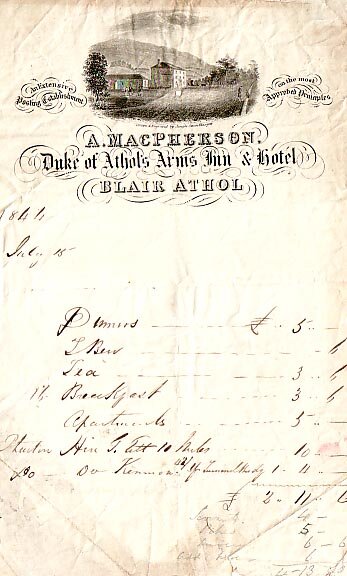 An Extensive
Posting Establishment
on the most
Approved Principles
A. MACPHERSON.
Duke of Athol's Arms Inn & Hotel
BLAIR ATHOL
1844
July 15
Dinners £ 5 " -
Beer - 6
Tea 3 " 6
16 Breakfast 3 " 6
Apartments 5 " -
Phaeton Hire 10 Miles 10 " -
Do Do Kenmore 1 " 11 " -
£ 2 " 11 " 6
4 -
5 -
6 - 6
6
4 - 13